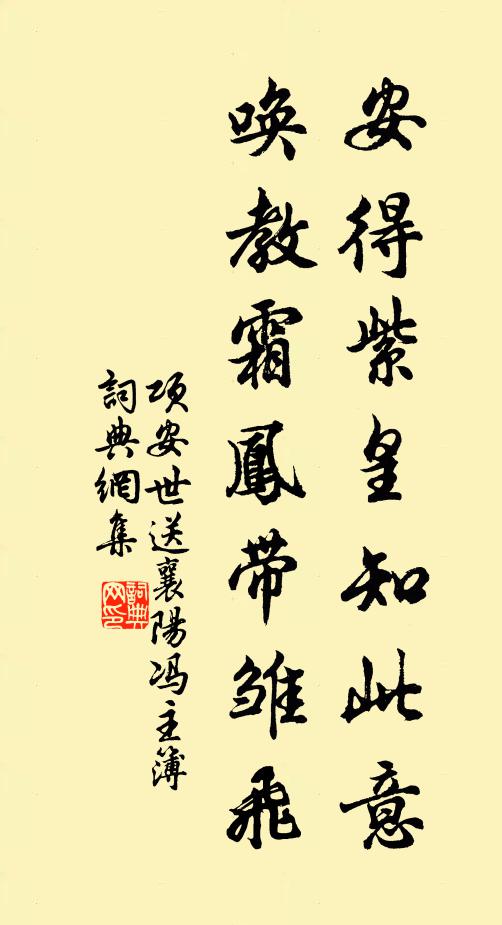 安得紫皇知此意
喚教霜鳳帶雏飛
項安世送襄陽冯主簿
詞典網集
詞典网印